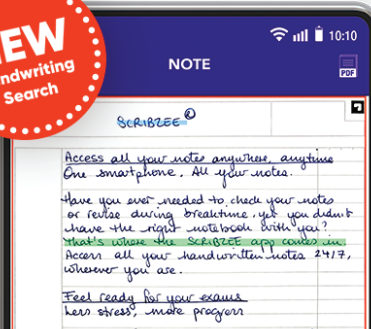 NEW
ndwriting
Search
10:10
NOTE
PDF
SCRIBZEE®
Access all your notes anywhere, anytime
One smartphone. All your notes.
Have you ever needed to check your notes
or revise during breaktime, yet you didn't
have the right notebook with you?
That's where the SCRIBZEE app comes in
Access all your handwritten notes 24/7,
wherever you are.
Feel ready for your exams
Less stress, more progress